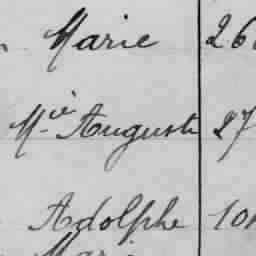 Marie 26
Mie Auguste 27
Adolphe 10